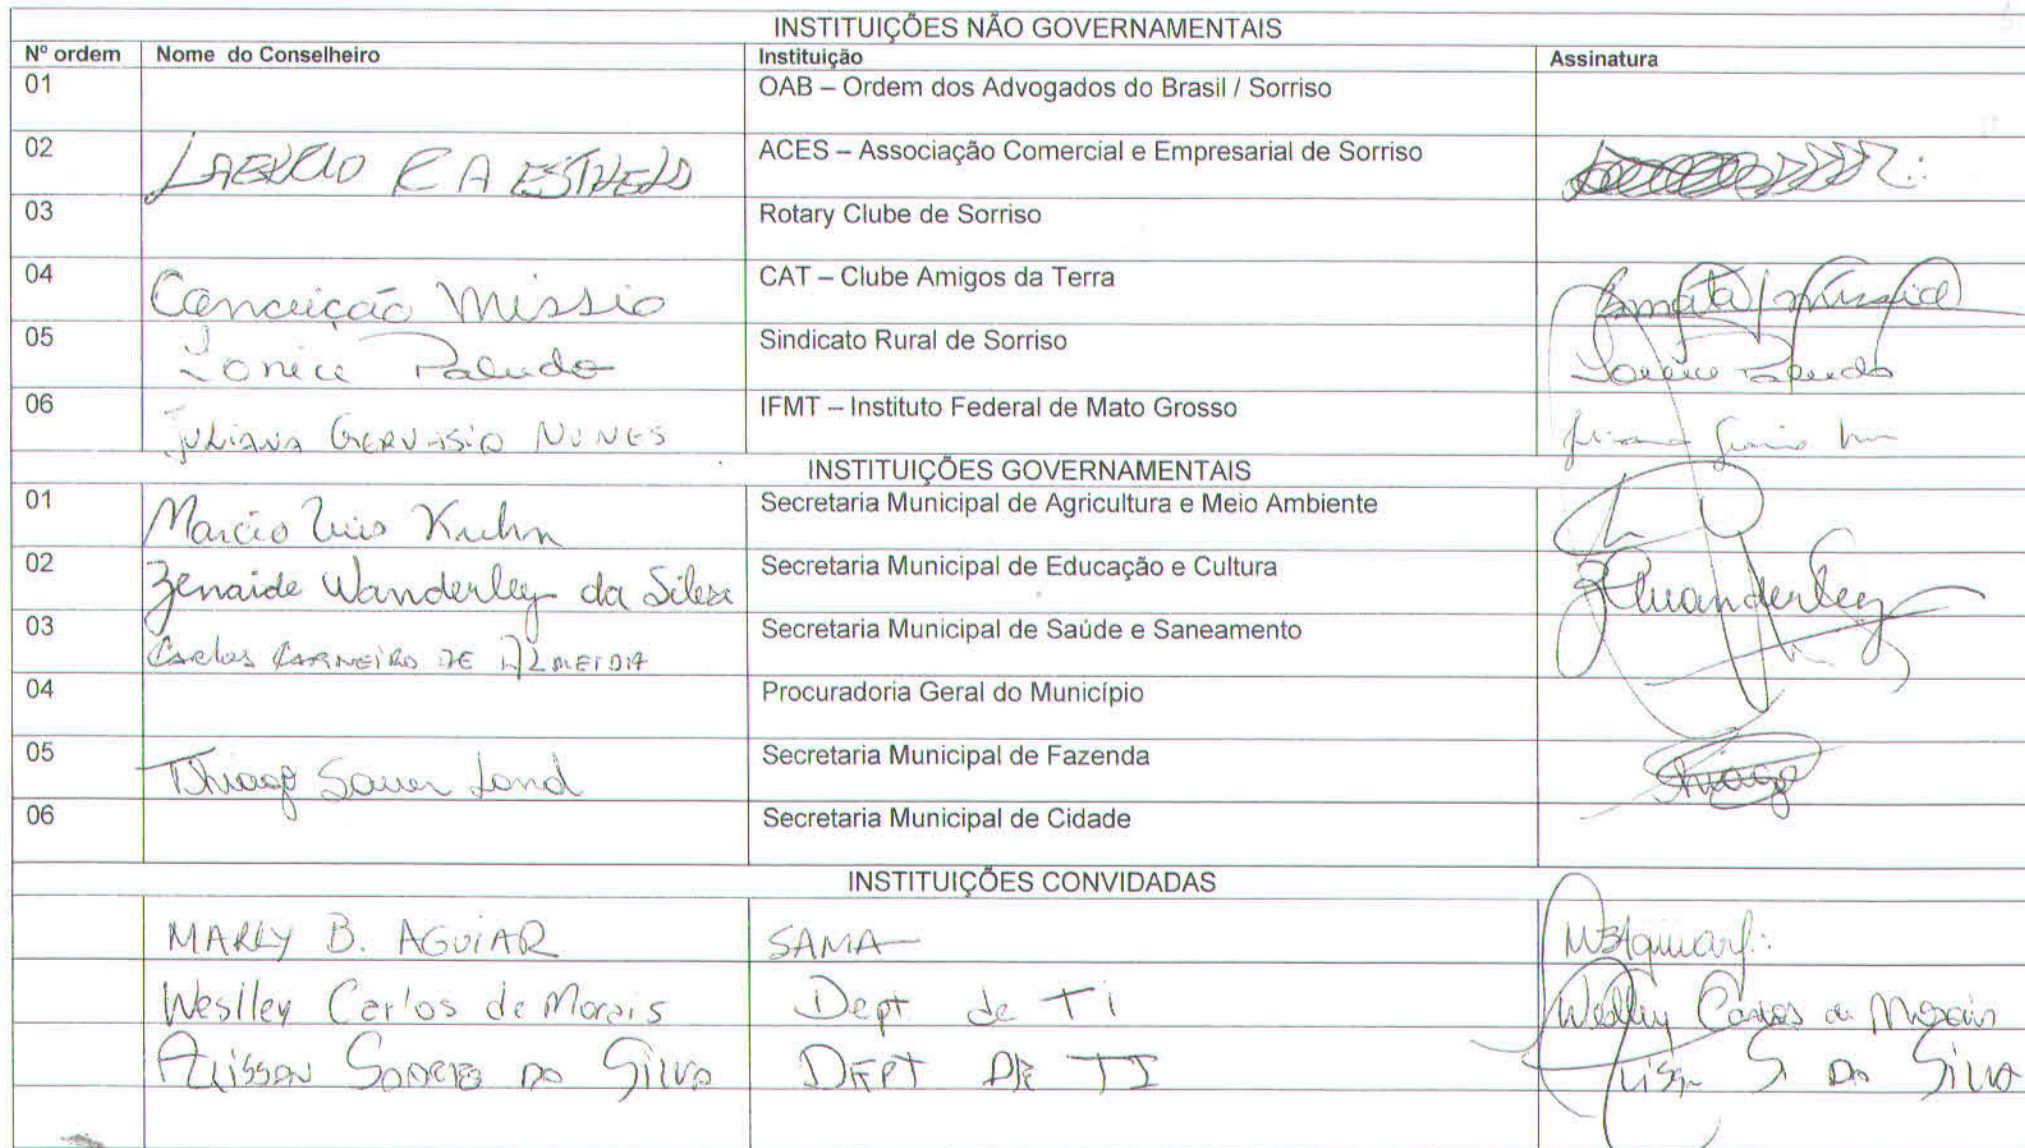 INSTITUIÇÕES NÃO GOVERNAMENTAIS
Nº ordem Nome do Conselheiro Instituição Assinatura
01 OAB – Ordem dos Advogados do Brasil / Sorriso
02 ACES – Associação Comercial e Empresarial de Sorriso
03 Rotary Clube de Sorriso
04 Conceição Missio CAT – Clube Amigos da Terra
05 Ionice Paludo Sindicato Rural de Sorriso Paludo
06 Juliana Gervásio Nunes IFMT – Instituto Federal de Mato Grosso
INSTITUIÇÕES GOVERNAMENTAIS
01 Marcio Luis Kuhn Secretaria Municipal de Agricultura e Meio Ambiente
02 Zenaide Wanderley da Silva Secretaria Municipal de Educação e Cultura ZWanderley
03 Carlos Carneiro de Almeida Secretaria Municipal de Saúde e Saneamento
04 Procuradoria Geral do Município
05 Thiago Sauer Secretaria Municipal de Fazenda Thiago
06 Secretaria Municipal de Cidade
INSTITUIÇÕES CONVIDADAS
MARLY B. AGUIAR SAMA MBAguiar
Weslley Carlos de Morais Dept de TI Weslley Carlos de Morais
Alisson da Silva DEPT DE TI S da Silva